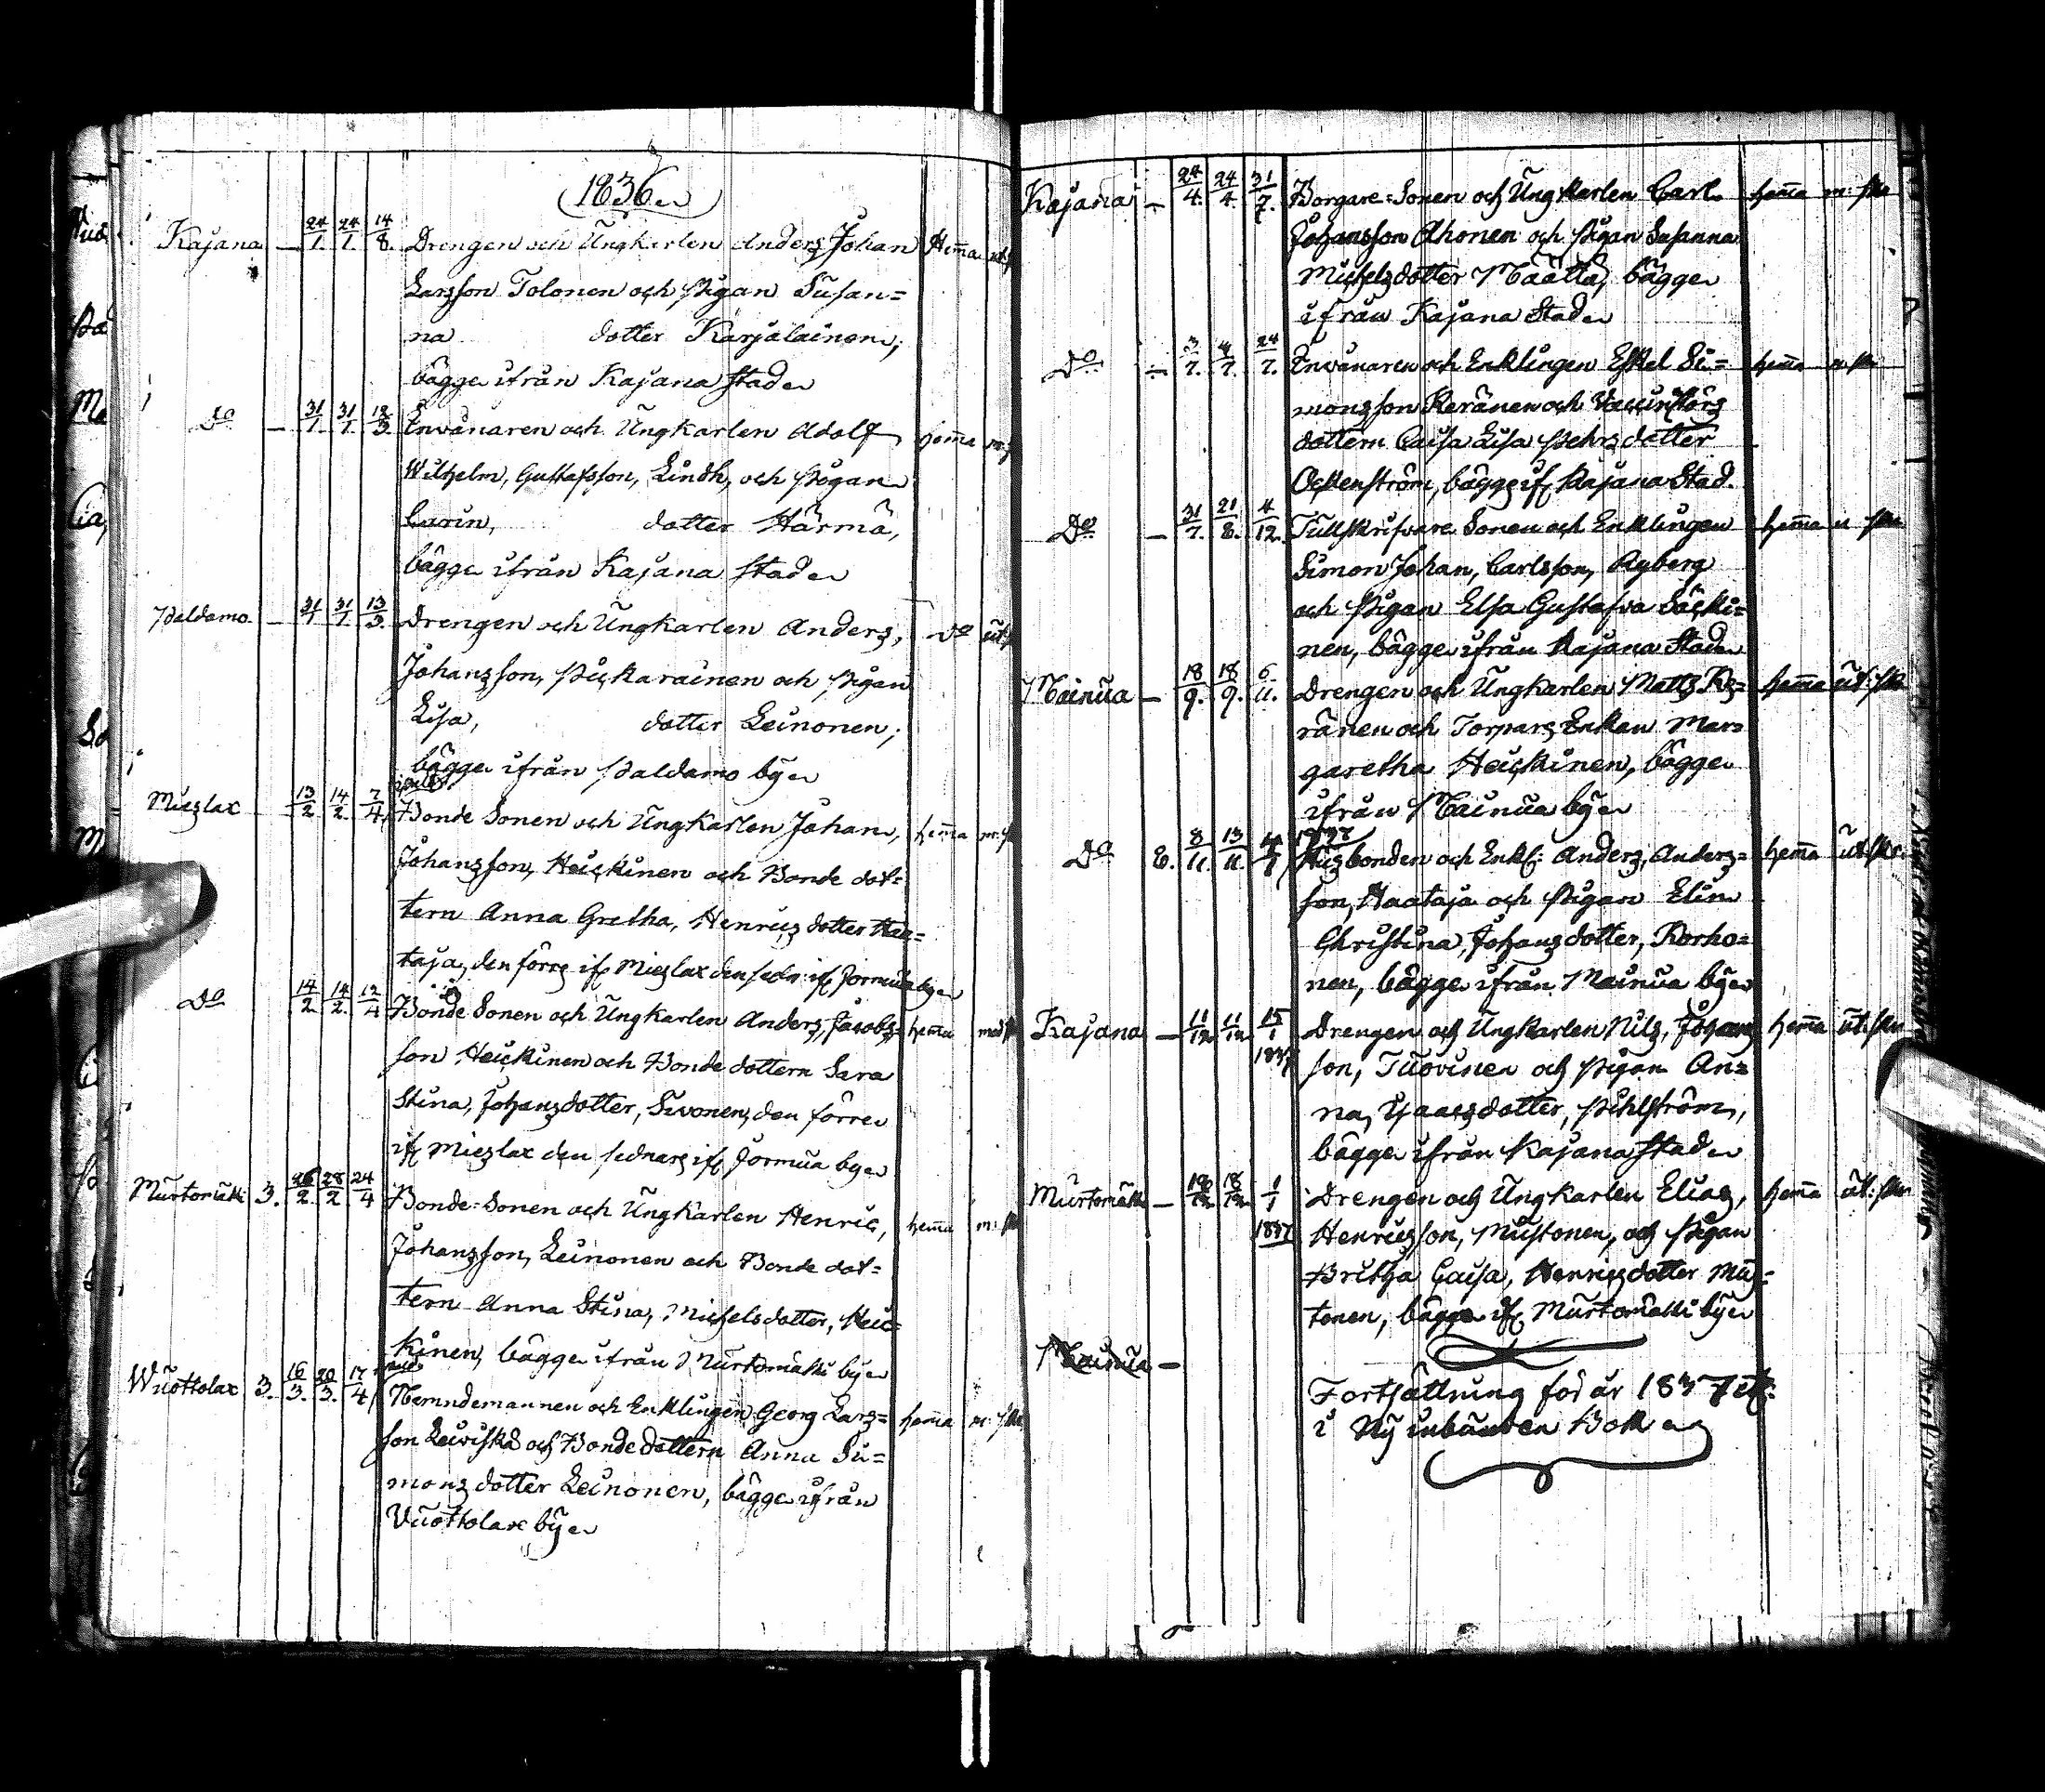 1836
Kajana — 24/1. 24/1. 14/8. Drengen och Ungkarlen Anders Johan Hema
Larsson Tolonen och Pigan Susan=
na dotter Karjalainen,
bägge ifrån Kajana stad
Do — 31/1. 31/1. 13/3. Envånaren och Ungkarlen Adolf hema
Wilhelm, Gustafsson, Lindh, och Pigan
Carin, dotter Härmä,
bägge ifrån Kajana stad
Paldamo — 31/1. 31/1. 13/3. Drengen och Ungkarlen Anders, Do
Johansson, Pickarainen och Pigan
Lisa, dotter Leinonen;
bägge ifrån Paldamo by
Mieslax 13/2. 14/2. 7/4 Bonde Sonen och Ungkarlen Johan, hema
Johansson, Heickinen och Bonde dot=
tern Anna Gretha, Henricsdotter Haa=
taja, den förre if. Mieslax den sedn: if. Jormua by
Do 14/2. 14/2. 12/4 Bonde Sonen och Ungkarlen Anders, Jacobs= hema
son Heickinen och Bonde dottern Sara
Stina, Johansdotter, Sivonen, den förre
if. Mieslax den sednare if. Jormua by
Murtomäki 3. 26/2. 28/2. 24/4 Bonde-Sonen och Ungkarlen Henric, hema m: sk
Johansson, Leinonen och Bonde dot=
tern Anna Stina, Michelsdotter, Heic=
kinen, bägge ifrån Murtomäki by
Wuottolax 3. 16/3. 20/3. 17/4 Nemndemannen och Enklingen Georg Lars= hema m: sk
son Leiviskä och Bondedottern Anna Si=
monsdotter Leinonen, bägge ifrån
Vuottolax by
Kajana — 24/4. 24/4. 31/7. Borgare-Sonen och Ungkarlen Carl hema m: sk
Johansson Ahonen och Pigan Susanna
Michelsdotter Määttä, bägge
ifrån Kajana Stad
Do — 3/7. 4/7. 24/7. Envånaren och Enklingen Eskel Si= hema
monsson Keränen och
dottern Caisa Lisa Pehrsdotter
Ockenström, bägge if. Kajana Stad.
Do — 31/7. 21/8. 4/12. Tullskrifvare Sonen och Enklingen hema
Simon Johan, Carlsson, Ryberg
och Pigan Elsa Gustafva Säcki=
nen, bägge ifrån Kajana Stad
Mainua — 18/9. 18/9. 6/11. Drengen och Ungkarlen Matts Ke= hema ut: sk
ränen och Torpars Enkan Mar=
garetha Heickinen, bägge
ifrån Mainua by
1837
Do 8. 8/11. 13/11. Husbonden och Enkl: Anders, Anders= hema ut: sk
son, Haataja och Pigan Elin
Christina, Johansdotter, Korho=
nen, bägge ifrån Mainua by
Kajana — 11/12 11/12 15/1 Drengen och Ungkarlen Nils, Johans hema ut: sk
1837 son, Tuovinen och Pigan An=
na, Isaacsdotter, Pihlström,
bägge ifrån Kajana stad
Murtomäki — 18/12 18/12 1/1 Drengen och Ungkarlen Elias, hema ut: sk
1837 Henricsson, Mustonen, och Pigan
Britha Caisa, Henricsdotter Mus=
tonen, bägge if. Murtomäki by
Mainua —
Fortsättning för år 1837 etc.
i Ny inbunden Bok